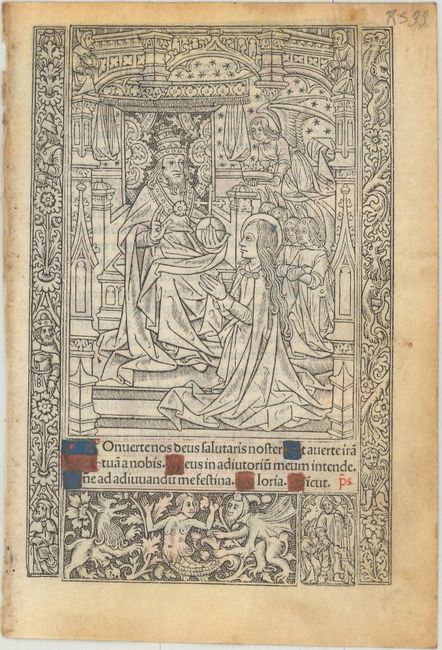 RS33
Conuerte nos deus salutaris noster Et auerte irã
tuã a nobis. Deus in adiutoriũ meum intende.
Dñe ad adiuuandũ me festina. Gloria. Sicut. ps.